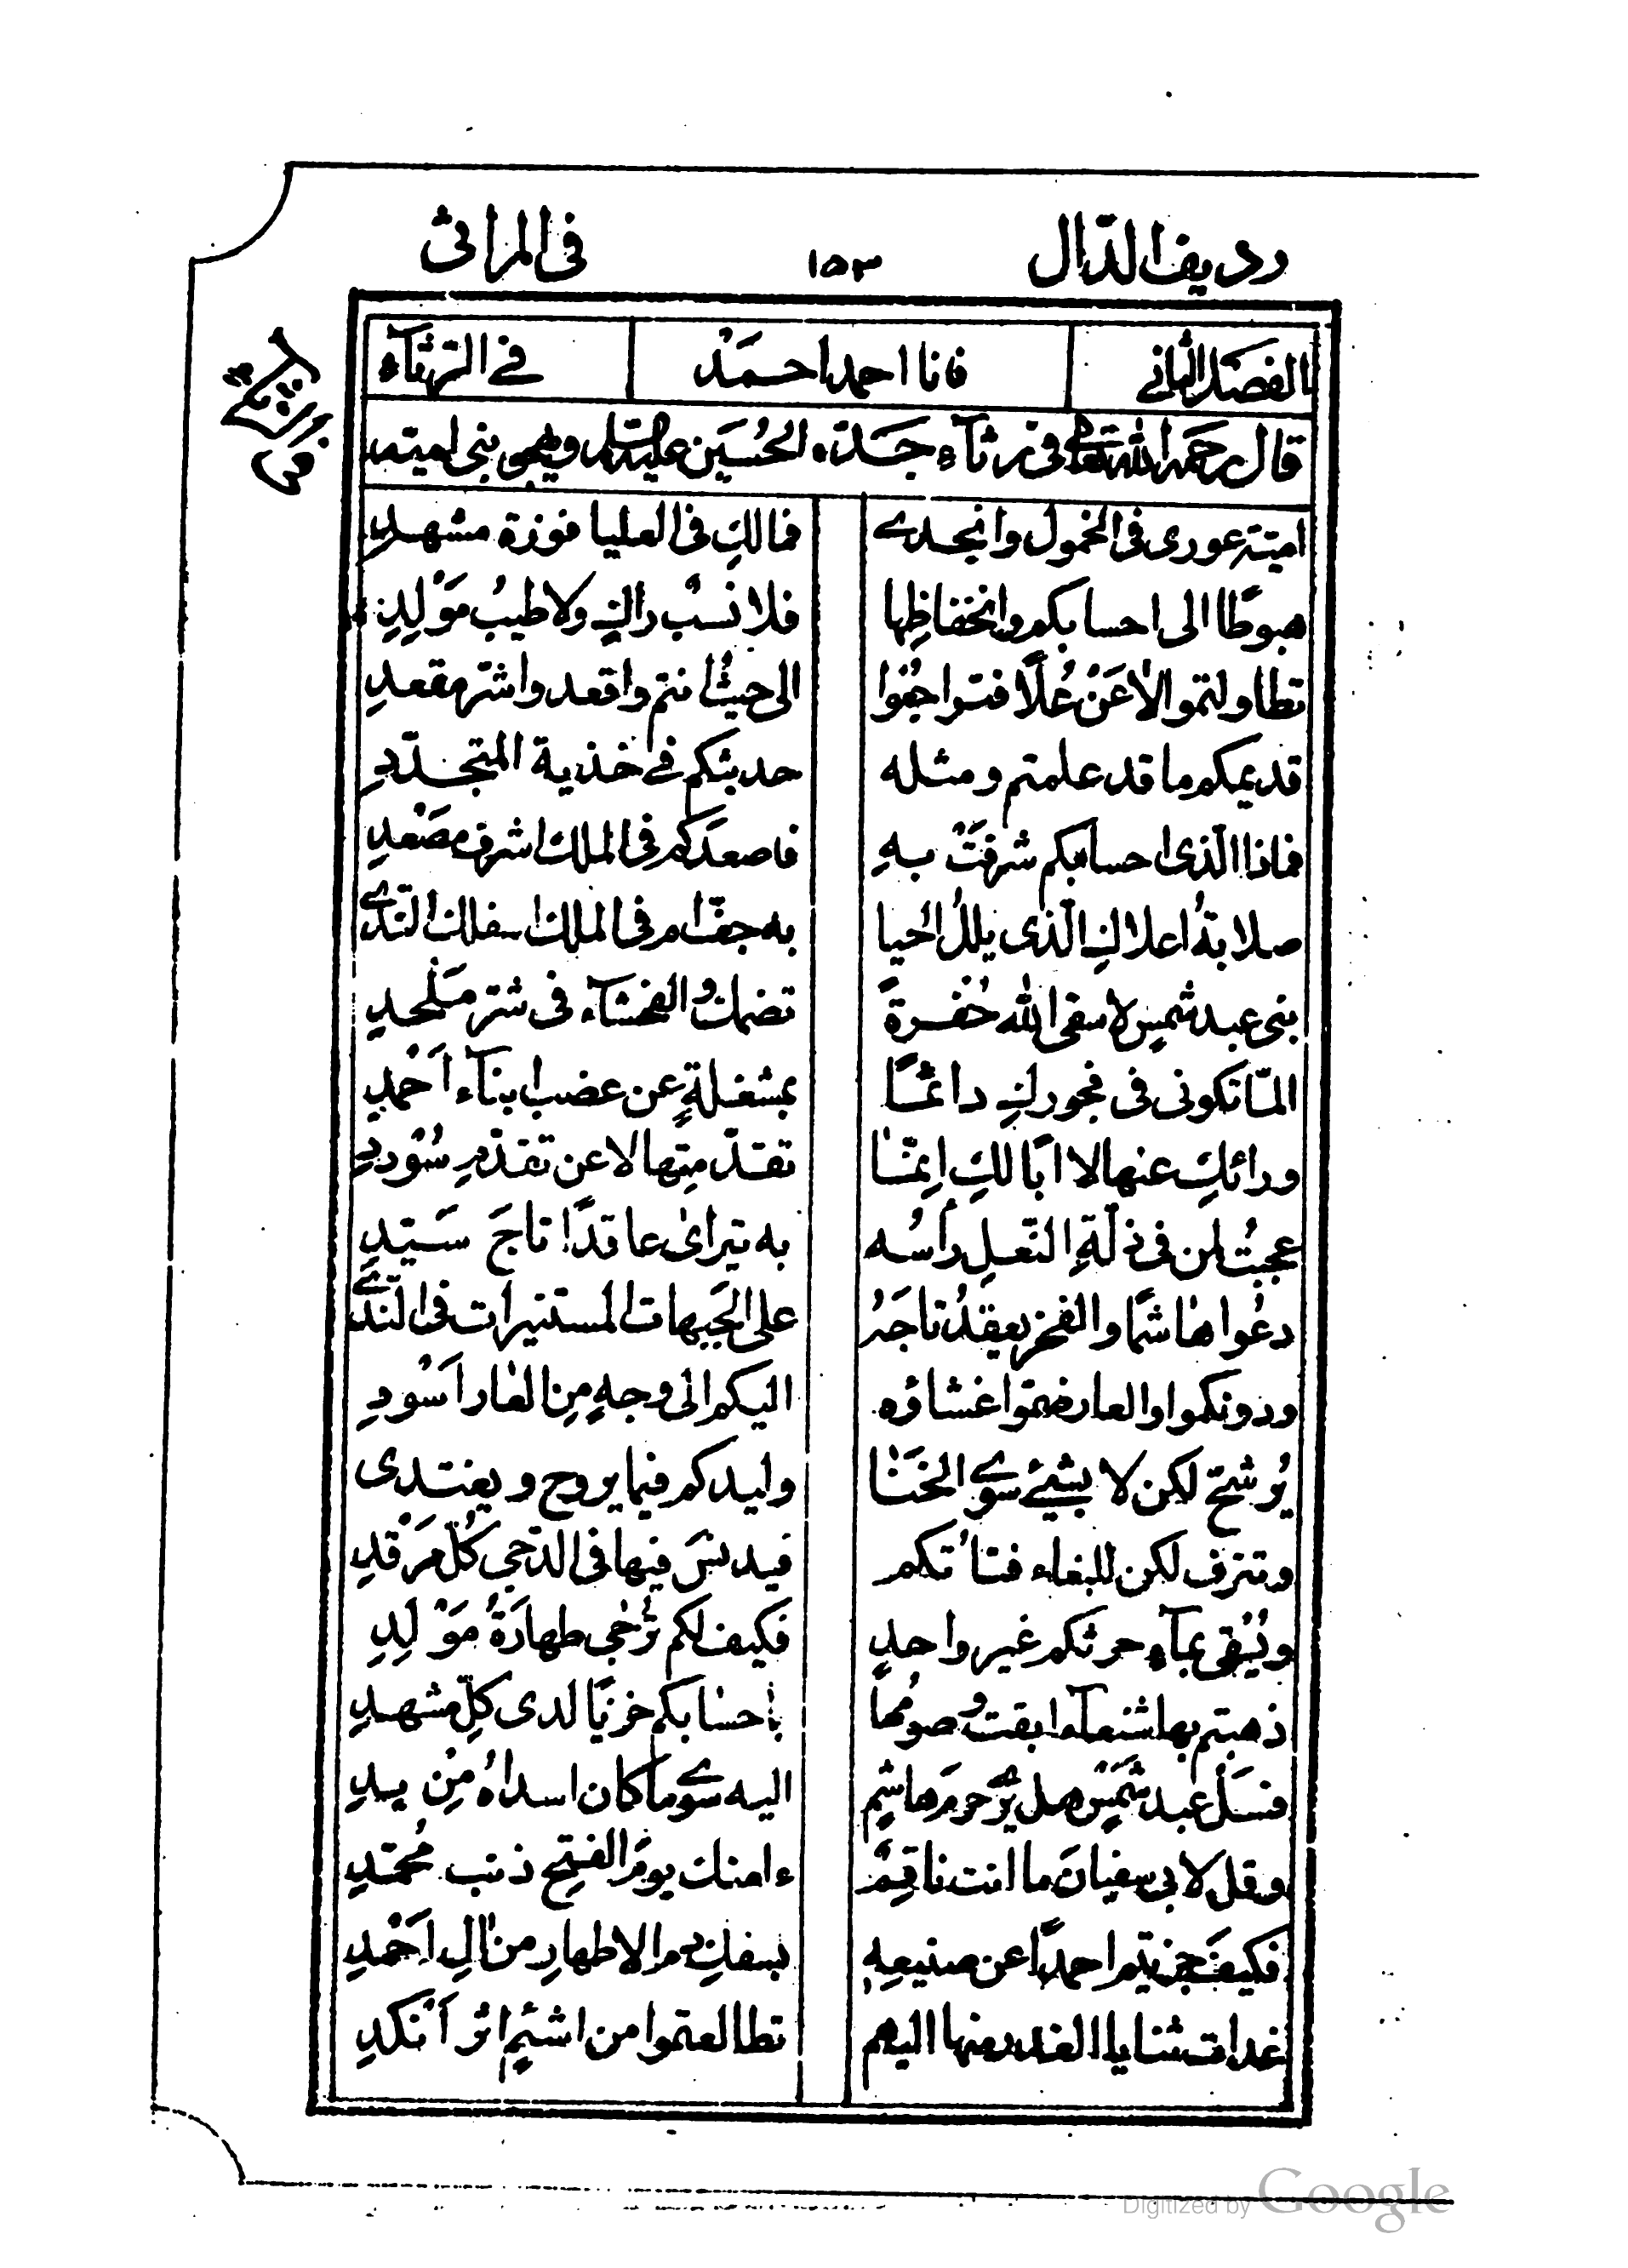 رديف الدّال ١٥٣ فى المراثى
الفصل الثانى فانا احمد احمَدْ فے الرثآء
فى الرثآء
قال رحمه الله تعالى فى رثآء جدّه الحُسَين عليه السلام ويهجو بنى اميّة
اميّة غورى فى الخمول وانجدے فمالكِ فى العليا فوزة مشهدِ
هبوطًا الى احسابكم وانخفاظِها فلا نسبٌ زاكٍ ولا طيبُ مَوْلِدِ
تطاولتموا لا عَنْ عُلًا فتراجعُوا الى حيث انتم واقعدوا شرّ مقعدِ
قديمكم ما قد علمتم ومثله حديثكم فے خذية المتجدّدِ
فماذا الّذى احسابكم شرفَتْ بهِ فاصعدَكم فى الملك اشرف مصْعدِ
صلابةُ اعلاكِ الّذى بللُ الحيا به جفّ ام فى الملك اسفلك النّدے
بنى عبد شمسٍ لا سقى الله حُفرةً تضمّك والفحشآء فى شرّ مَلْحدِ
المّا تكونى فى فجوركِ دائمًا بمشغلةٍ عن غصب ابنآء احْمدِ
ورائكِ عنها لا ابًا لكِ اِنّمٰا تقدّمتِها لا عن تقدّم سُوْددِ
عجبتُ لمن فى ذلّةِ النّعلِ رأسُه به يترائى عاقدًا تاجَ سَيّدِ
دعُوا هٰاشمًا والفخر يعقدُ تاجَهُ على الجَبهات المستنيرات فى النّدے
ودونكموا والعار ضمّوا غشاؤه اليكم الى وجهٍ مِن العٰار اَسْودِ
يُرشحُ لكن لا بشيئٍ سوے الخَنٰا وليدكم فيما يروح ويغتدى
وتنزف لكن للبغاء فتاتُكم فيدنسَ فيها فى الدّجى كُلّ مَرْقدِ
ويُسْقى بمآءٍ حرثكم غير واحدٍ فكيف لكم تُرْجٰى طهارَةُ مَوْلِدِ
ذهبتم بها شنعآء ابقت وصومُها باحسٰابكم خزيًا لدى كلّ مشهدِ
فسَلْ عبدَ شمْسٍ هل يُرٰى جرمَ هاشمٍ اليه سوے ما كان اسداهُ مِن يدِ
وقل لابى سفيانَ ما انت ناقمٌ ءامنك يومَ الفتح ذنب مُحمّدِ
فكيف جزيتم احمدًا عن صنيعهِ بسفكِ دم الاطهارِ من اٰلِ اَحْمدِ
غداة ثنايا الغدر منها اليهم تطالعتموا من اشئمٍ اثر اَنْكدِ
Digitized by Google